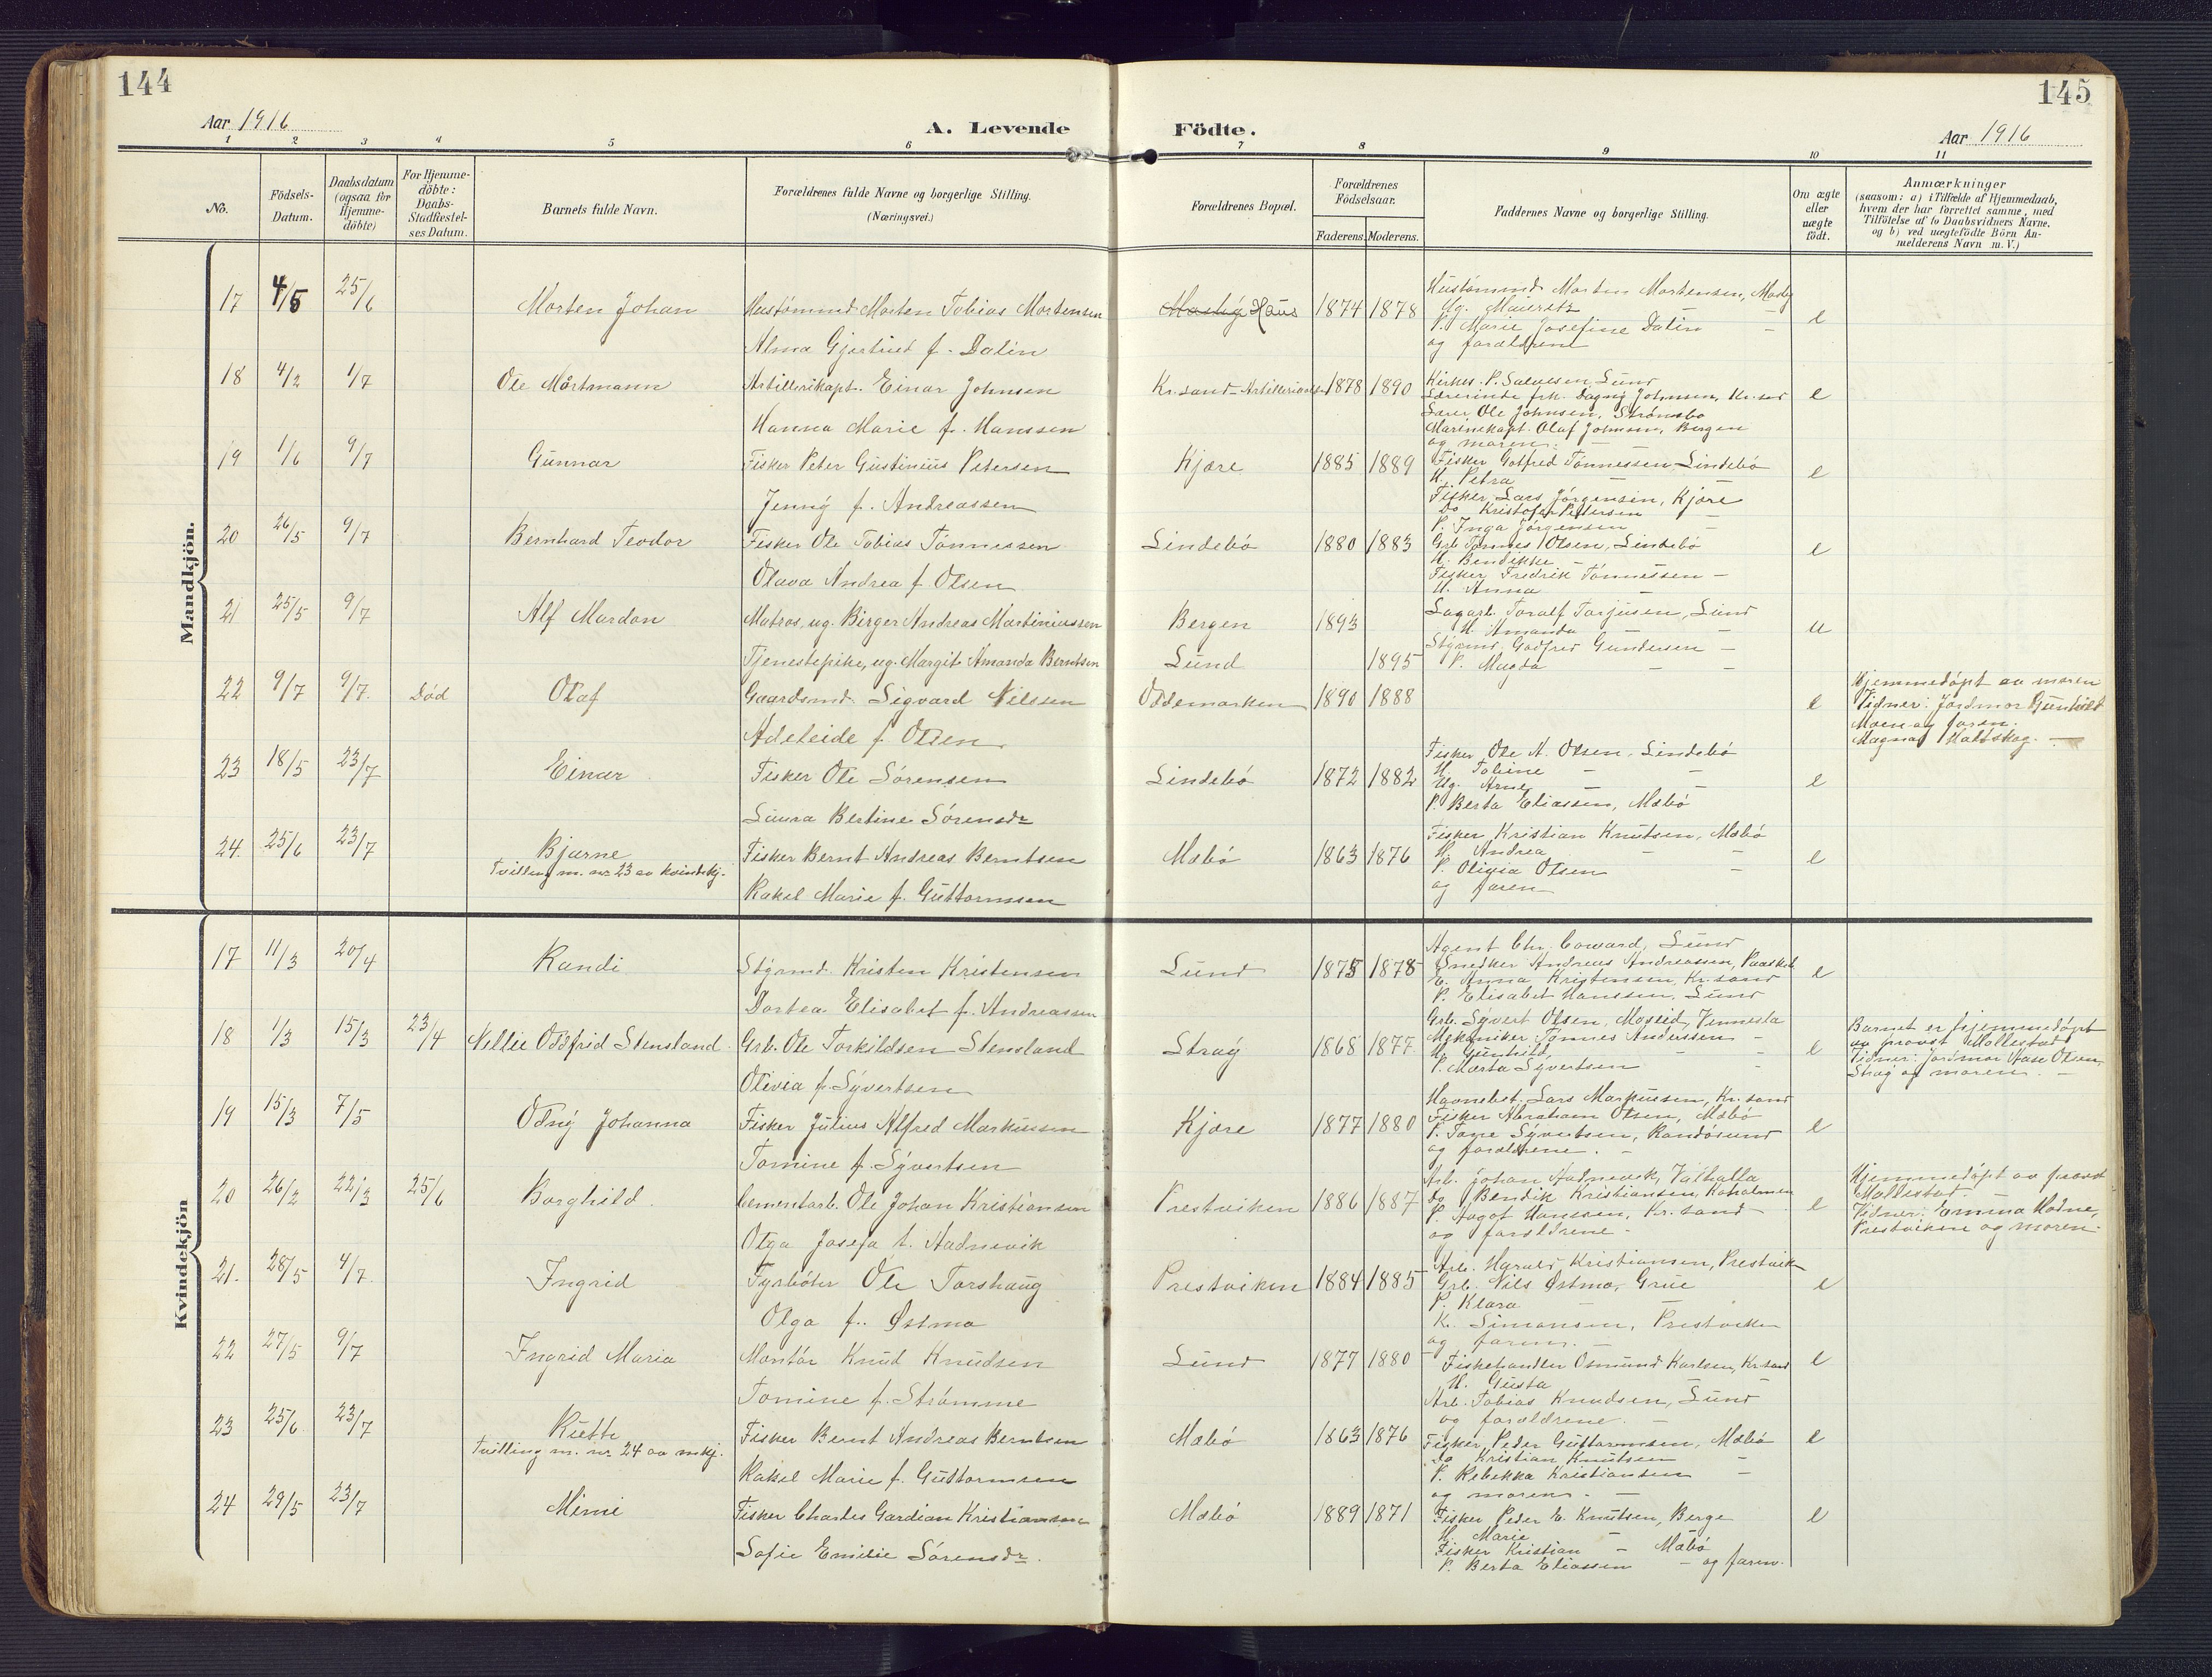 144
145
Aar 1916
A. Levende
Födte.
Aar 1916
1 2 3 4 5 6 7 8 9 10 11
No.
Födsels-
Datum.
Daabsdatum
(ogsaa for
Hjemme-
döbte)
For Hjemme-
döbte:
Daabs-
Stadfæstel-
ses Datum.
Barnets fulde Navn.
Forældrenes fulde Navne og borgerlige Stilling.
(Næringsvei.)
Forældrenes Bopæl.
Forældrenes
Födselsaar.
Faderens. Moderens.
Faddernes Navne og borgerlige Stilling.
Om ægte
eller
uægte
födt.
Anmærkninger
(saasom: a) i Tilfælde af Hjemmedaab,
hvem der har forrettet samme, med
Tilföielse af to Daabsvidners Navne,
og b) ved uægtefödte Börn An-
melderens Navn m. V.)
Mandkjön.
17 4/5 25/6 Morten Johan Hustömmd Morten Tobias Mortensen Haus 1874 1878 e
Alma Gjertine f. Dalin
Hustömmd Morten Mortensen, Moslg
Ug. Mauritz
P. Marie Josefine Dalin
og foreldrene
18 4/2 1/7 Ole Mårtmann Artillerikapt. Einar Johnsen Kr.sand 1878 1890 e
Hanna Marie f. Hanssen
Kirkes. P. Salvesen, Lund
Lærerinde frk. Dagny Johnsen, Kr.sand
Lærer Ole Johnsen, Strömsbo
Marinekapt. Olaf Johnsen, Bergen
og moren.
19 1/6 9/7 Gunnar Fisker Peter Gustinius Petersen Kjære 1885 1889 e
Jenny f. Andreassen
Fisker Gotfred Tönnessen Lindebö
H. Petra
Fisker Lars Jörgensen, Kjære
Do Kristofer Pettersen
P. Inga Jörgensen
20 26/5 9/7 Bernhard Teodor Fisker Ole Tobias Tönnessen Lindebö 1880 1883 e
Olava Andrea f. Olsen
Grb Tönnes Olsen, Lindebö
H. Bendikke
Fisker Fredrik Tönnessen
H. Anna
21 25/5 9/7 Alf Mardon Matros, ug. Birger Andreas Martiniussen Bergen 1893 u
Tjenestepike, ug. Margit Amanda Berntsen Lund 1895
Lagarb. Toralf Tarjusen, Lund
H. Amanda
Styrmd. Godfred Gundersen
P. Magda
22 9/7 9/7. Död Olaf Gaardsmd. Sigvard Nilssen Oddemarken 1890 1888 e
Adeleide f. Olsen.
Hjemmedöpt av moren
Vidner: Jordmor Gunhild
Moen og faren.
Magna Maltskog.
23 18/5 23/7 Einar Fisker Ole Sörensen Lindebö 1872 1882 e
Laura Bertine Sörensdr
Fisker Ole A. Olsen, Lindebö
H. Tobine
Ug. Arne
P. Berta Eliassen, Mæbö
24. 25/6 23/7 Bjarne Fisker Bernt Andreas Berntsen Mæbö 1863 1876 e
Tvilling m. nr 23 av kvindekj.
Rakel Marie f. Guttormsen
Fisker Kristian Knutsen, Mæbö
H. Andrea
P. Olivia Olsen
og faren
Kvindekjön
17 11/3 20/4 Randi Styrmd. Kristen Kristensen Lund 1875 1878 e
Dortea Elisabet f. Andreassen
Agent Chr. Coward, Lund
Snedker Andreas Andreassen,
E. Anna Kristensen, Kr.sand
P. Elisabet Hanssen, Lund
18 1/3 15/3 23/4 Nellie Oddfrid Stensland Grb. Ole Torkildsen Stensland Stray 1868 1877. e
Olivia f. Syvertsen
Grb. Syvert Olsen, Moseid, Vennesla
Mekaniker Tönnes Anderssen
H. Gunhild
P. Marta Syvertsen
Barnet er hjemmedöpt
av provst Mollestad
Vidner: Jordmor Aase Olsen,
Stray og moren.
19 15/3 7/5 Odny Johanna Fisker Julius Alfred Markussen Kjære 1877 1880 e
Tomine f. Syvertsen
Havnebet. Lars Markussen, Kr.sand
Fisker Abraham Olsen, Mæbö
P. Tone Syvertsen, Randösund
og foreldrene.
20 26/2 22/3 25/6 Borghild. Cementarb. Ole Johan Kristiansen Prestviken 1886 1887 e
Olga Josefa f. Aadnevik
Arb. Johan Aadnevik, Valhalla
Do Bendik Kristiansen, Kaholmen
P. Aagot Hanssen, Kr.sand
og foreldrene
Hjemmedöpt av provst
Mollestad.
Vidner: Emma Hodne,
Prestviken og moren.
21. 28/5 4/7. Ingrid Fyrböter Ole Torshaug Prestviken 1884 1885 e
Olga f. Østmo
Arb. Harald Kristiansen, Prestvik
Grb. Nils Østmo, Grue
P. Klara
K. Simonsen, Prestviken
og faren.
22 27/5 9/7 Ingrid Maria Montör Knud Knudsen Lund 1877 1880 e
Tomine f. Strömme
Fiskehandler Osmund Karlsen, Kr.sand
H. Gusta
Arb. Tobias Knudsen, Lund
og foreldrene.
23 25/6 23/7 Rutt Fisker Bernt Andreas Berntsen Mæbö 1863 1876 e
Tvilling m. nr. 24 av mkj.
Rakel Marie f. Guttormsen
Fisker Peder Guttormsen, Mæbö
Do Kristian Knutsen
P. Rebekka Kristiansen
og moren.
24 29/5 23/7 Mimi Fisker Charles Gardian Kristiansen Mæbö 1889 1871 e
Sofie Emilie Sörensdr.
Fisker Peder E. Knutsen, Berge
H. Marie
Fisker Kristian - Mæbö
P. Berta Eliassen - og faren.